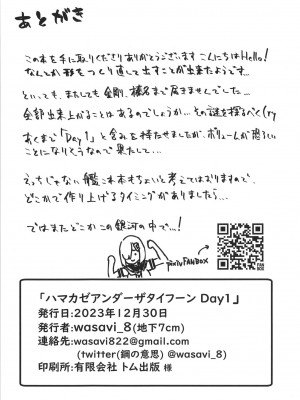 あとがき
この本を手に取りくださりありがとうございます こんにちはHello!
なんとか形をつくり直して出すことが出来たようです…
といっても、またしても金剛、榛名まで届きませんでした…
全部出来上がることはあるのでしょうか…その謎を探るべく(ry
あくまで「Day1」と含みを持たせましたが、ボリュームが恐ろしい
ことになりそうなので果たして…
えっちじゃない艦これ本もちょいと考えてはおりますので、
どこかで作り上げるタイミングがありましたら…
ではまたどこかこの銀河の中で…!
pixivFANBOX
「ハマカゼアンダーザタイフーン Day1」
発行日:2023年12月30日
発行者:wasavi_8(地下7cm)
連絡先:wasavi822@gmail.com
(twitter(鋼の意思) @wasavi_8)
印刷所:有限会社 トム出版 様